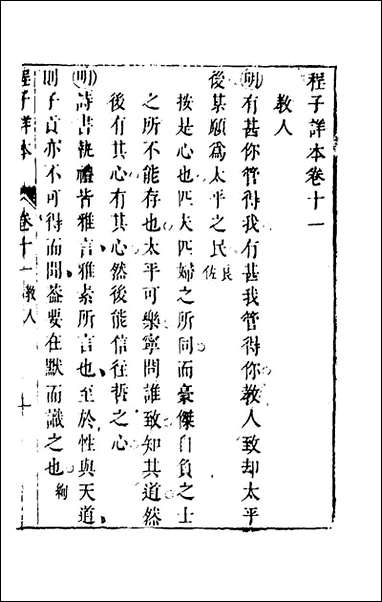 程子詳本卷十一
教人
明有甚你管得我有甚我管得你教人致却太平
後某願爲太平之民良佐
按是心也匹夫匹婦之所同而豪傑自負之士
之所不能存也太平可樂寧問誰致知其道然
後有其心有其心然後能信往哲之心
明詩書執禮皆雅言雅素所言也至於性與天道
則子貢亦不可得而聞葢要在默而識之也絢
程子詳本
卷十一教人